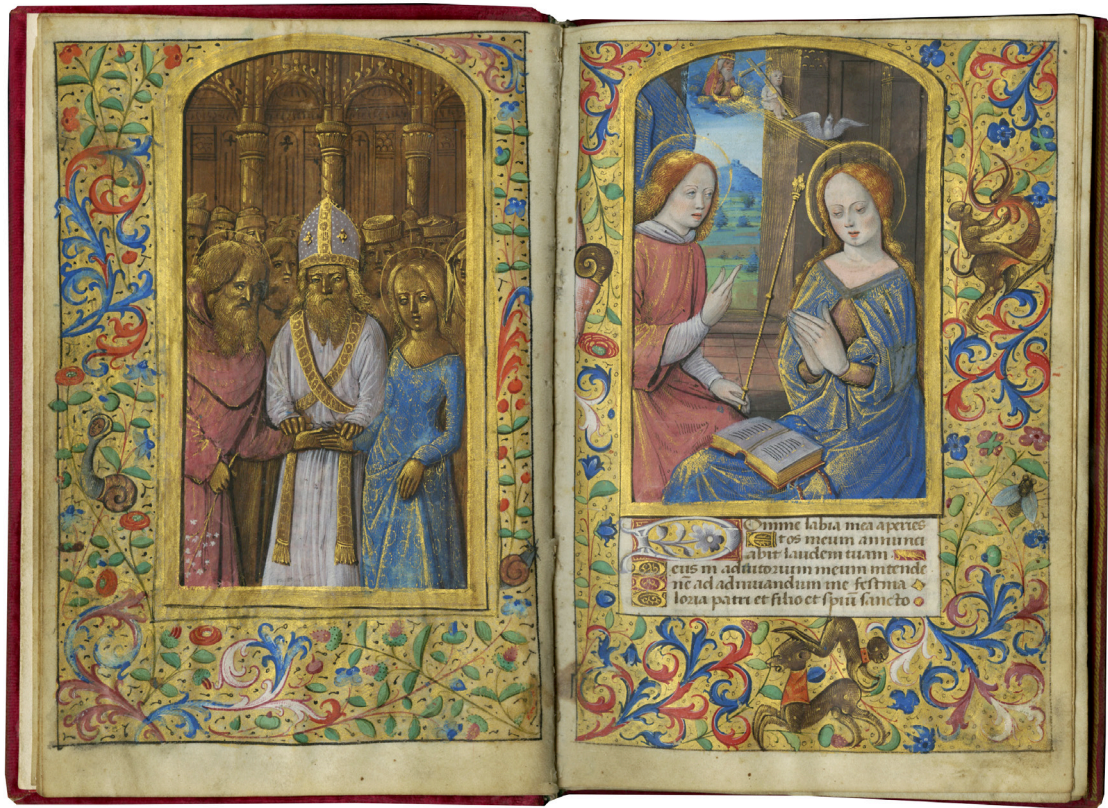 Domine labia mea aperies
Et os meum annunci
abit laudem tuam
Deus in adiutorium meum intende
Dn̄e ad adiuuandum me festina
Gloria patri et filio et spiu sancto